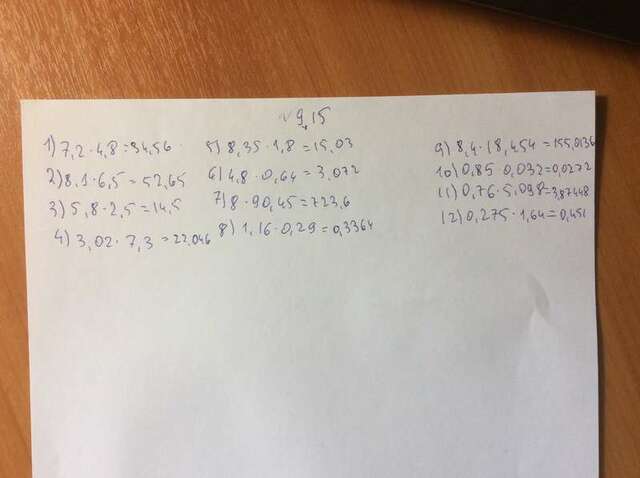 №9,15
1) 7,2·4,8=34,56
2) 8,1·6,5=52,65
3) 5,8·2,5=14,5
4) 3,02·7,3=22,046
5) 8,35·1,8=15,03
6) 4,8·0,64=3,072
7) 8·90,45=723,6
8) 1,16·0,29=0,3364
9) 8,4·18,454=155,0136
10) 0,85·0,032=0,0272
11) 0,76·5,098=3,87448
12) 0,275·1,64=0,451